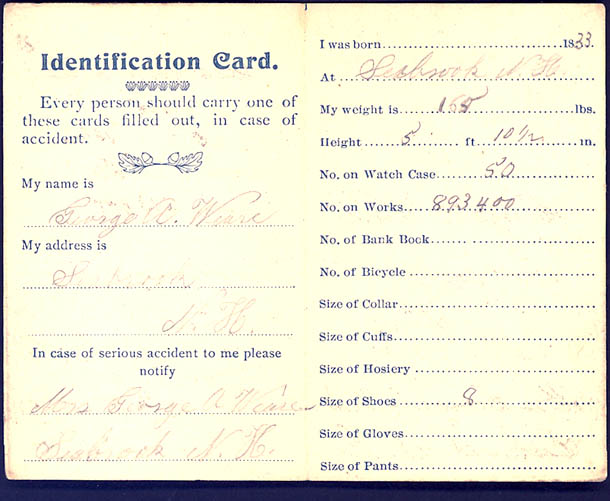 Identification Card.
Every person should carry one of
these cards filled out, in case of
accident.
My name is
George A. Weare
My address is
Seabrook
N. H.
In case of serious accident to me please
notify
Mrs George A Weare
Seabrook N. H.
I was born 1833.
At Seabrook N H
My weight is 165 lbs.
Height 5 ft 10 1/2 in.
No. on Watch Case 50
No. on Works 893400
No. of Bank Book
No. of Bicycle
Size of Collar
Size of Cuffs
Size of Hosiery
Size of Shoes 8
Size of Gloves
Size of Pants